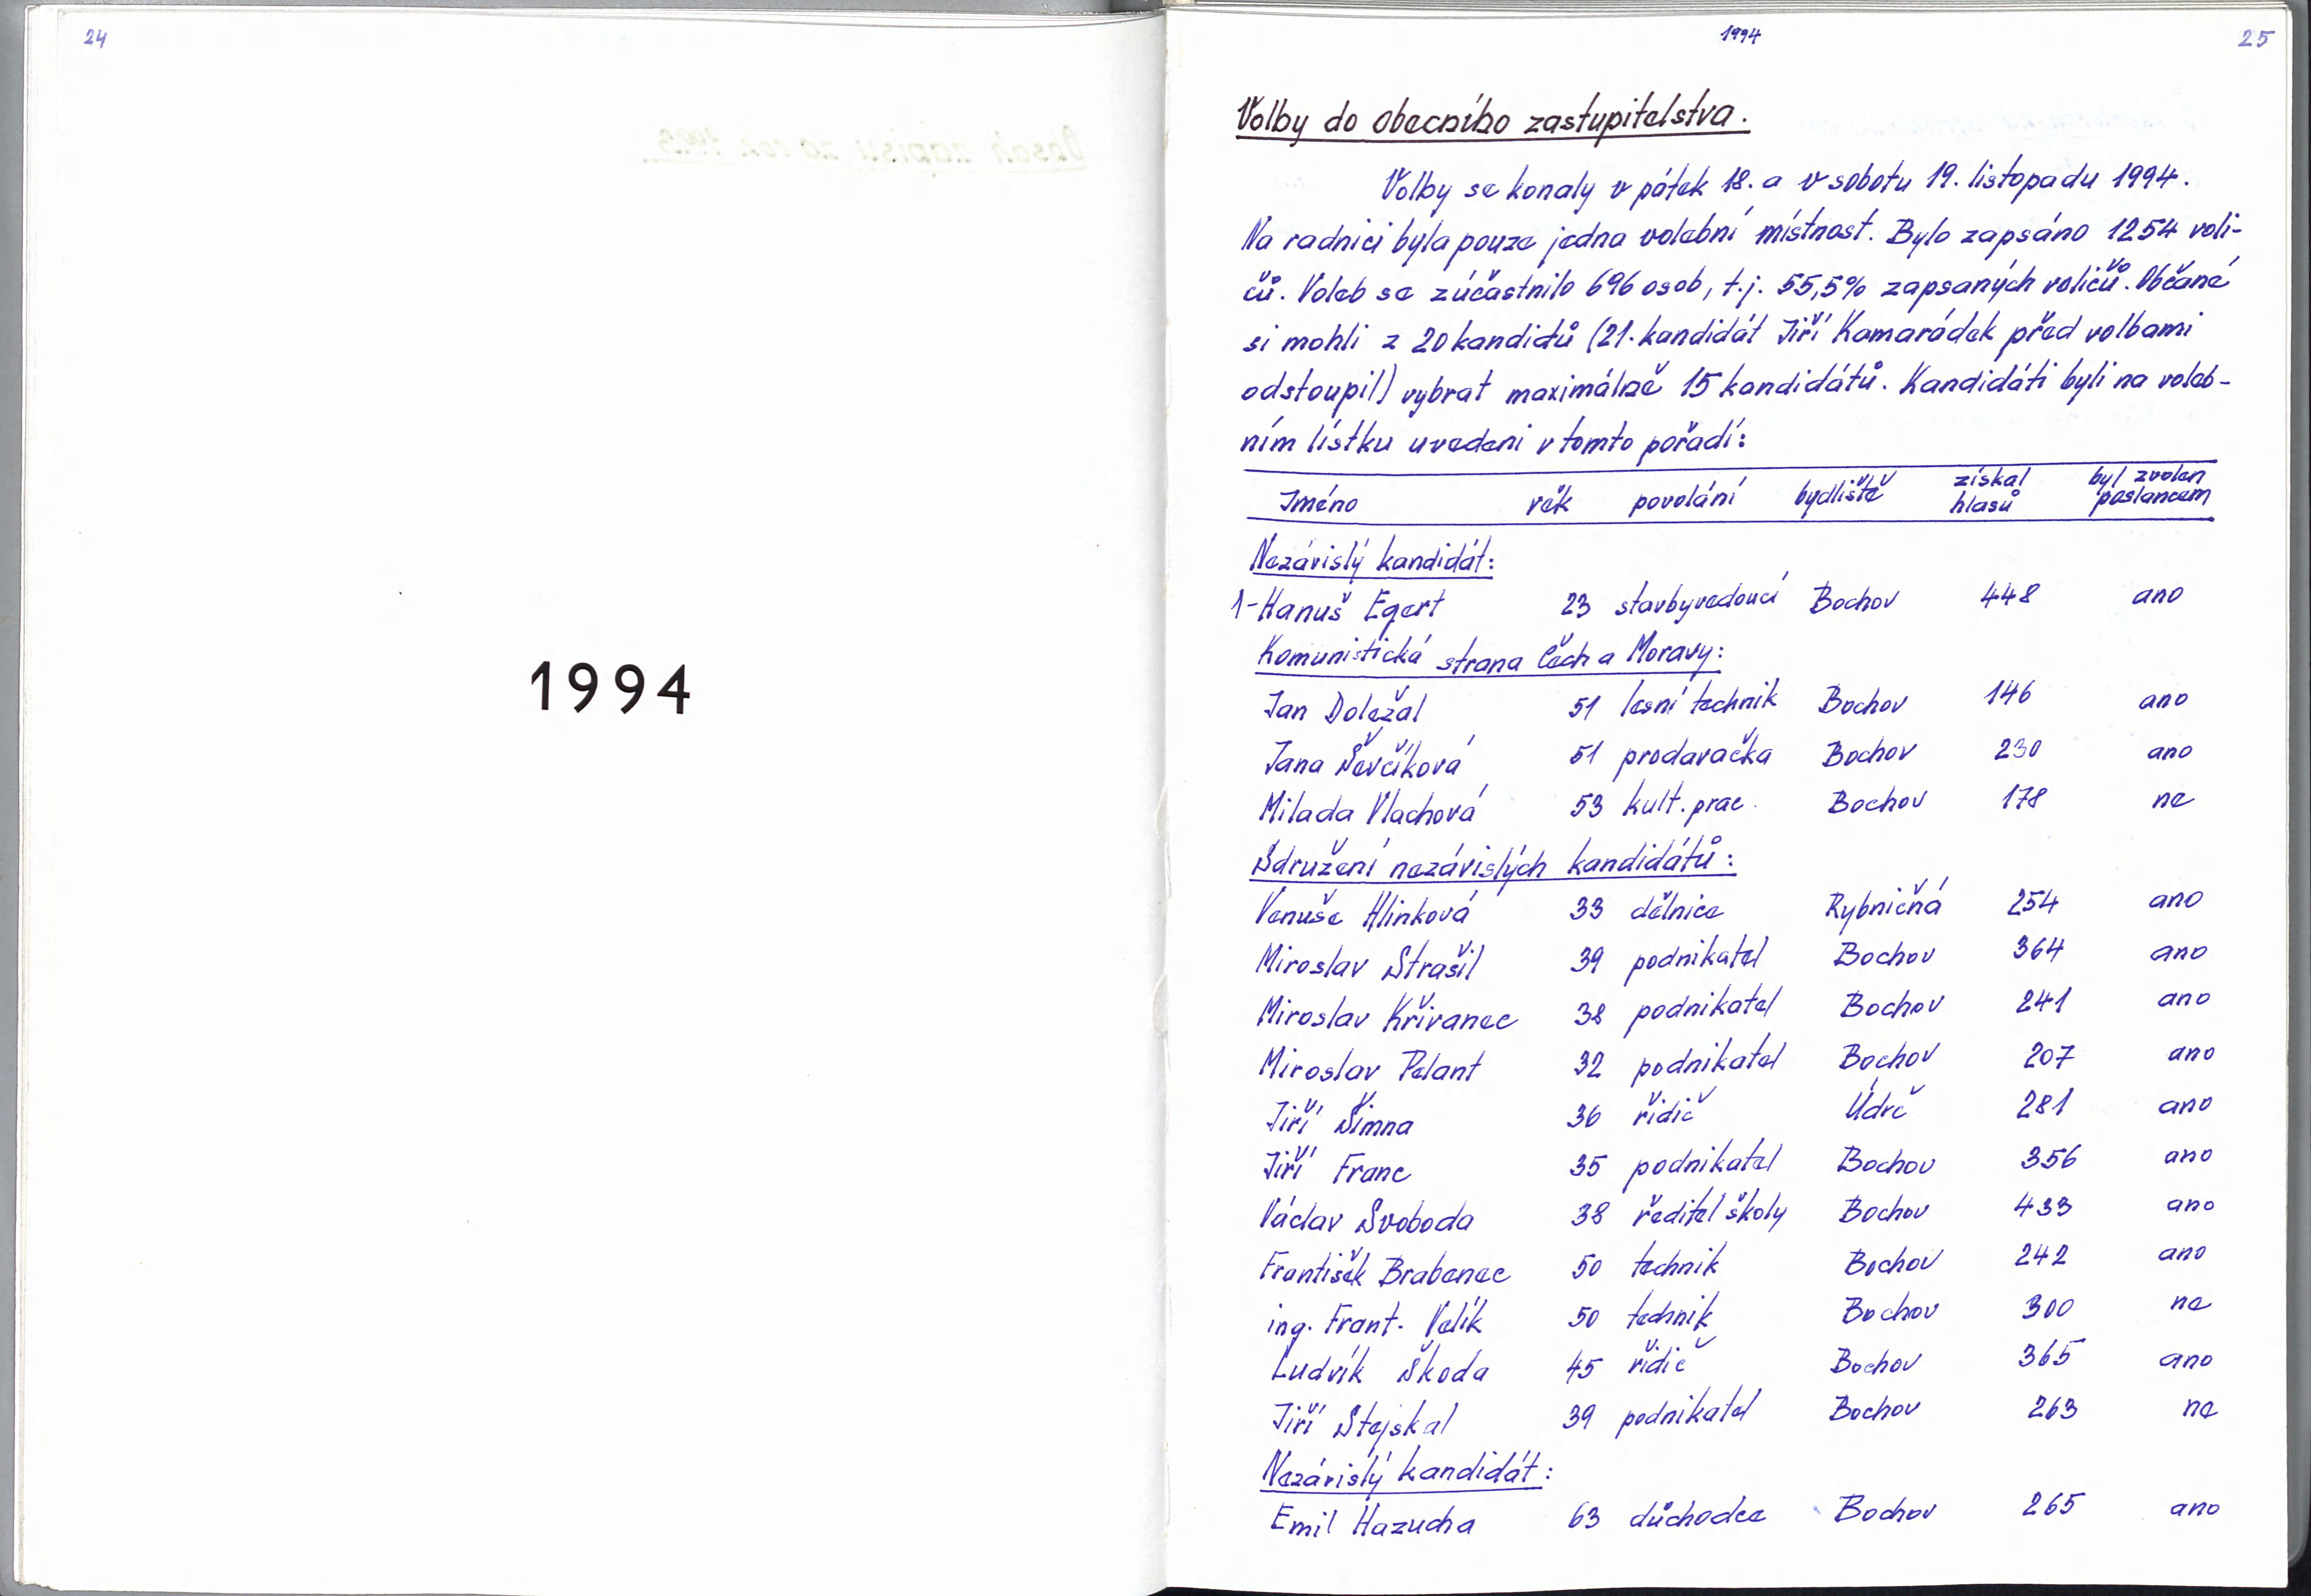 24
1994
1994
25
Volby do obecního zastupitelstva.
Volby se konaly v pátek 18. a v sobotu 19. listopadu 1994.
Na radnici byla pouze jedna volební místnost. Bylo zapsáno 1254 voli-
čů. Voleb se zúčastnilo 696 osob, t.j. 55,5% zapsaných voličů. Občané
si mohli z 20 kandidtů (21. kandidát Jiří Kamarádek před volbami
odstoupil) vybrat maximálně 15 kandidátů. Kandidáti byli na voleb-
ním lístku uvedeni v tomto pořadí:
Jméno věk povolání bydliště získal hlasů byl zvolen poslancem
Nezávislý kandidát:
1-Hanuš Egert 23 stavbyvedoucí Bochov 448 ano
Komunistická strana Čech a Moravy:
Jan Doležal 51 lesní technik Bochov 146 ano
Jana Ševčíková 51 prodavačka Bochov 230 ano
Milada Vlachová 53 kult. prac. Bochov 178 ne
Sdružení nezávislých kandidátů:
Venuše Hlinková 33 dělnice Rybničná 254 ano
Miroslav Strašil 39 podnikatel Bochov 364 ano
Miroslav Křivanec 38 podnikatel Bochov 241 ano
Miroslav Pelant 32 podnikatel Bochov 207 ano
Jiří Šimna 36 řidič Údrč 281 ano
Jiří Franc 35 podnikatel Bochov 356 ano
Václav Svoboda 38 ředitel školy Bochov 433 ano
František Brabenec 50 technik Bochov 242 ano
ing. Frant. Velík 50 technik Bochov 300 ne
Ludvík Škoda 45 řidič Bochov 365 ano
Jiří Stejskal 39 podnikatel Bochov 263 ne
Nezávislý kandidát:
Emil Hazucha 63 důchodce Bochov 265 ano